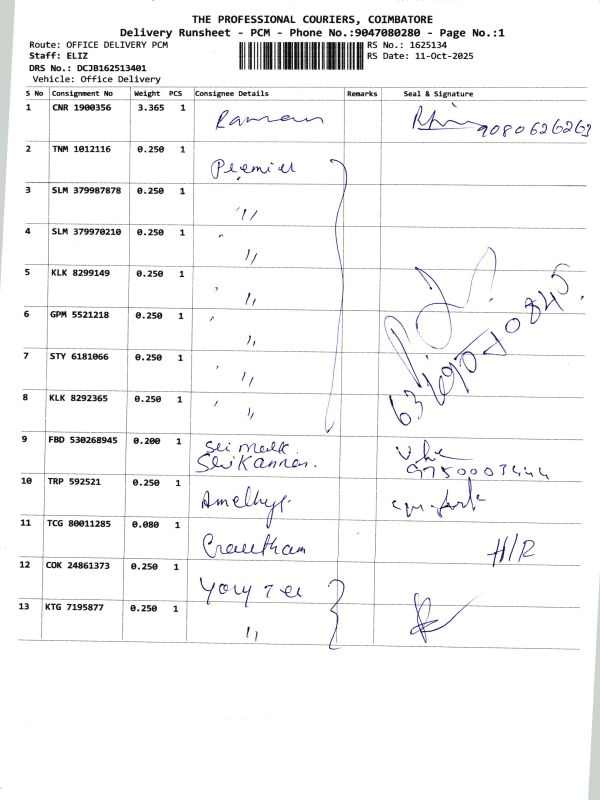 THE PROFESSIONAL COURIERS, COIMBATORE
Delivery Runsheet - PCM - Phone No.:9047080280 - Page No.:1
Route: OFFICE DELIVERY PCM RS No.: 1625134
Staff: ELIZ RS Date: 11-Oct-2025
DRS No.: DCJB162513401
Vehicle: Office Delivery
S No Consignment No Weight PCS Consignee Details Remarks Seal & Signature
1 CNR 1900356 3.365 1 Raman 9080626263
2 TNM 1012116 0.250 1 Premier
3 SLM 379987878 0.250 1 ,,
4 SLM 379970210 0.250 1 ,,
5 KLK 8299149 0.250 1 ,,
6 GPM 5521218 0.250 1 ,,
7 STY 6181066 0.250 1 ,,
8 KLK 8292365 0.250 1 ,,
9 FBD 530268945 0.200 1 Sri
Srikannan.
10 TRP 592521 0.250 1
11 TCG 80011285 0.080 1 H/R
12 COK 24861373 0.250 1
13 KTG 7195877 0.250 1 ,,